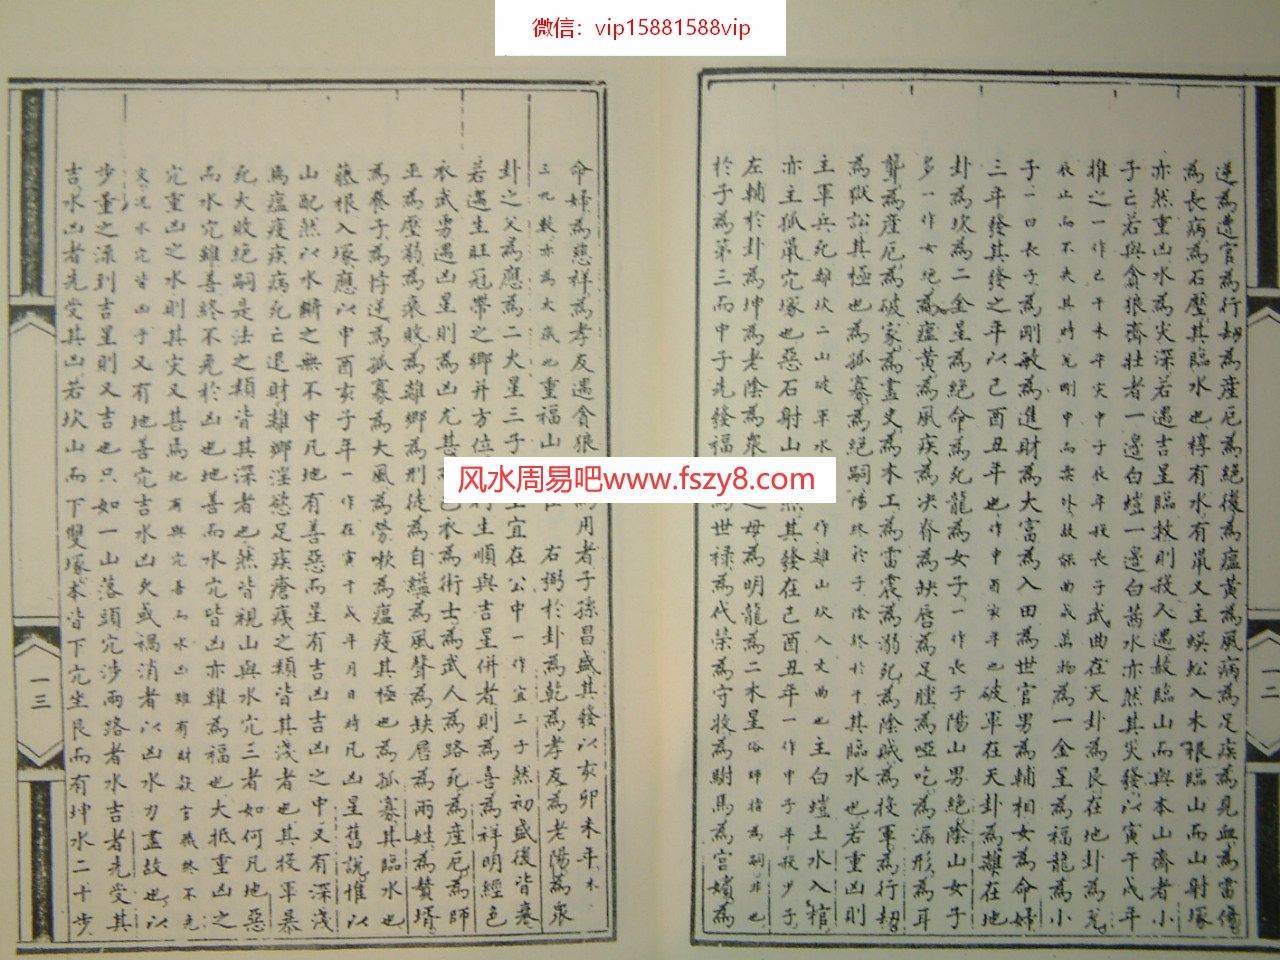 微信：vip15881588vip
逆為遭官為行刼為産厄為絕後為瘟黄為風病為足疾為見血為雷傷
為長病為石壓其臨水也椁有水有鼠又主蜈蚣入木根臨山而山射塚
亦然重凶水為災深若遇吉星臨救則殺人遇赦臨山而與本山齊者小
子亡若與貪狼齊壯者一邊白螘一邊白茜水亦然其災發以寅午戌年
推之一作巳午未年災中子我年我長子武曲在天卦為艮在地卦為兌
子一曰長子為剛敏為進財為大富為入田為世官男為輔相女為命婦
三年發其發之年以巳酉丑年也作申酉亥年也破軍在天卦為離在地
卦為坎為二金星為絕命為死龍為女子一作長子陽山男絕陰山女子
多一作女絕為瘟黄為風疾為决脊為缺唇為足腫為啞吃為漏形為耳
聾為産厄為破家為畫史為木工為雷震為溺死為陰賊為投軍為行刼
為獄訟其極也為孤寡為絕嗣陽終於子陰終於午其臨水也若重凶則
主軍兵死離坎二山破軍水 作離山坎入文曲也主白螘土水入棺
亦主孤鼠穴塚也惡石射山 然其發在巳酉丑年一作申子年我少子
左輔於卦為坤為老陰為眾 之母為明龍為二木星俗師指為嗣非也
於子為第三而中子先發福 為世禄為代榮為守牧為駙馬為宮嬪為
一二
命婦為慈祥為孝友遇貪狼 為用者子孫昌盛其發以亥卯未年木
三九數亦為大歲也重福山 右弼於卦為乾為孝友為老陽為眾
卦之父為應為二火星三子 宜在公中一作宜三子然初盛後皆衰
若遇生旺冠帶之鄉并方位 生順與吉星併者則為善為祥明經色
衣武勇遇凶星則為凶尤甚 衣為術士為武人為路死為産厄為師
巫為壓溺為衰敗為離鄉為刑徒為自縊為風聲為缺唇為兩姓為贅壻
為養子為悖逆為孤寡為大風為勞嗽為瘟疫其極也為孤寡其臨水也
藤根入塚應以申酉亥子年一作在寅午戌年月日時凡凶星舊說惟以
山配然以水斷之無不中凡地有善惡而星有吉凶吉凶之中又有深淺
焉瘟疫疾病死亡退財離鄉淫慾足疾瘡痍之類皆其淺者也其投軍暴
死大敗絕嗣是法之類皆其深者也然皆視山與水穴三者如何凡地惡
而水穴雖善終不免於凶也地善而水穴皆凶亦雖為福也大抵重凶之
穴重凶之水則其災又甚焉地有與穴善而水凶雖有財 終不免
災况水穴皆凶乎又有地善穴吉水凶久或禍消者以凶水力盡故也以
步量之深到吉星則又吉也只如一山落頭穴涉兩路者水吉者先受其
吉水凶者先受其凶若坎山而下雙塚本皆下穴坐艮而有坤水二十步
一三
风水周易吧www.fszy8.com